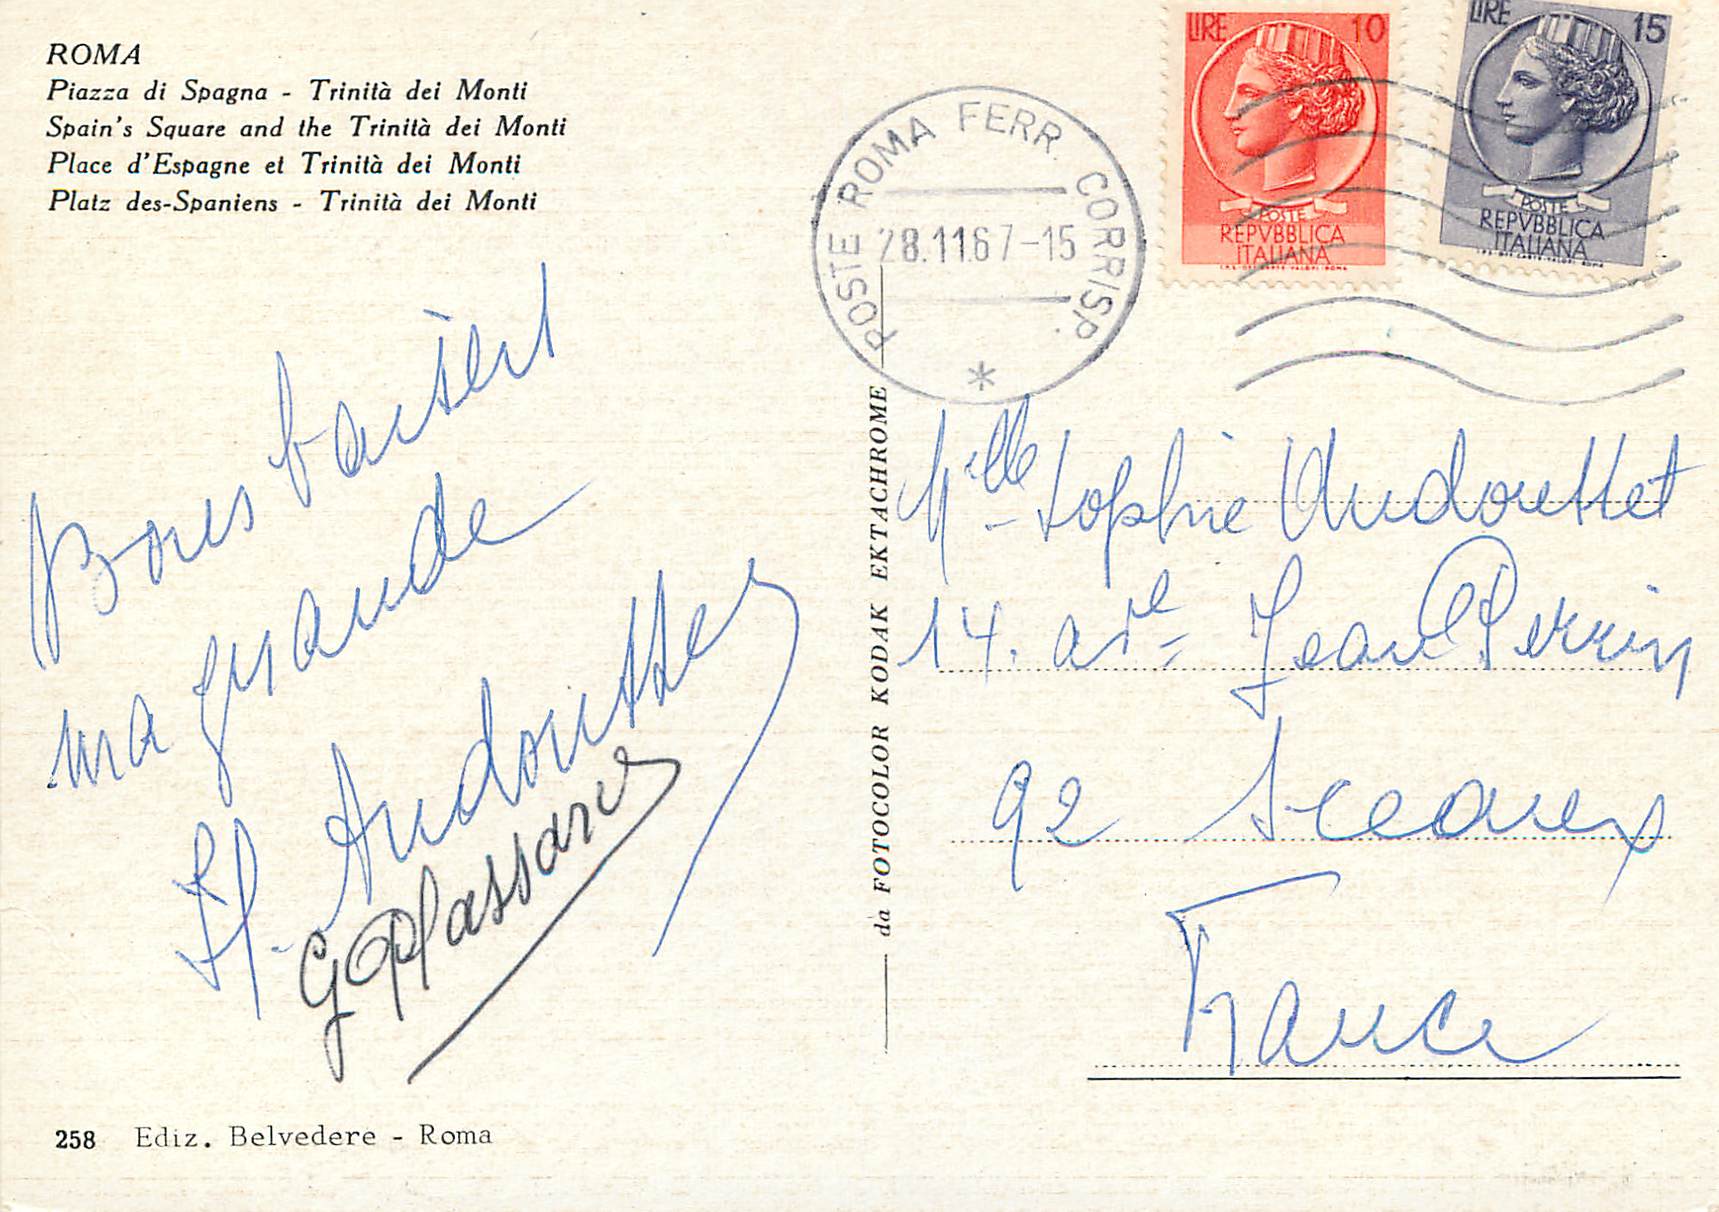 ROMA
Piazza di Spagna - Trinità dei Monti
Spain's Square and the Trinità dei Monti
Place d'Espagne et Trinità dei Monti
Platz des-Spaniens - Trinità dei Monti
LIRE 10
POSTE
REPVBBLICA
ITALIANA
LIRE 15
POSTE
REPVBBLICA
ITALIANA
POSTE ROMA FERR. CORRISP.
28.11.67-15
Bons baisers
ma grande
Audouttet
G Plassard
da FOTOCOLOR KODAK EKTACHROME
Mlle Sophie Audouttet
14. ave Jean Perrin
92 Sceaux
France
258 Ediz. Belvedere - Roma